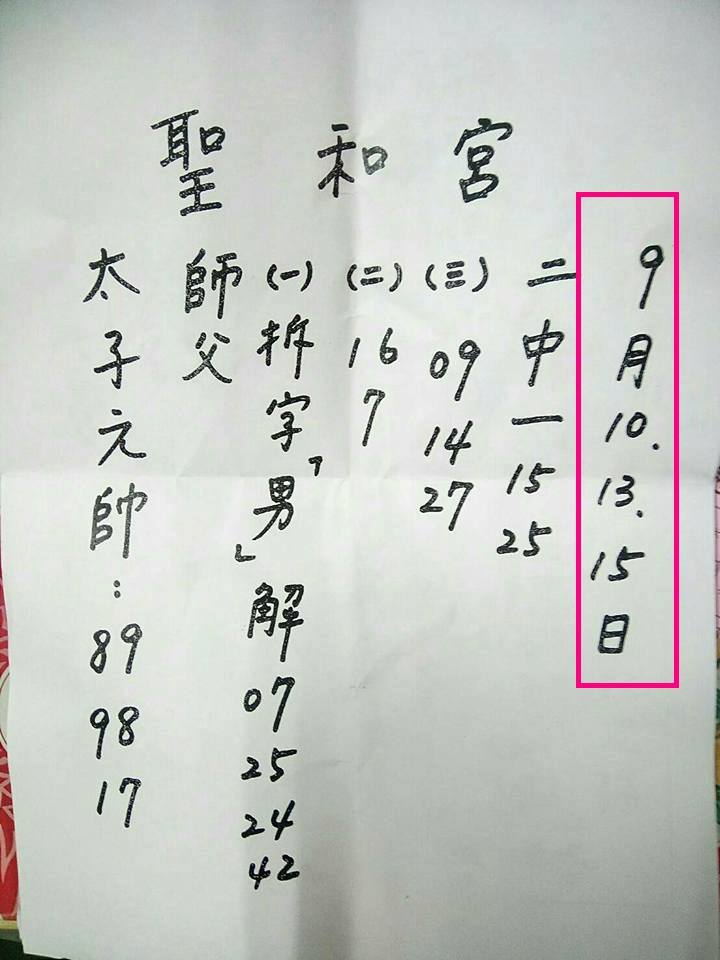 聖和宮
9月10.13.15日
二中一 15 25
(三) 09 14 27
(二) 16 7
(一) 拆字「男」解 07 25 24 42
師父
太子元帥：89 98 17